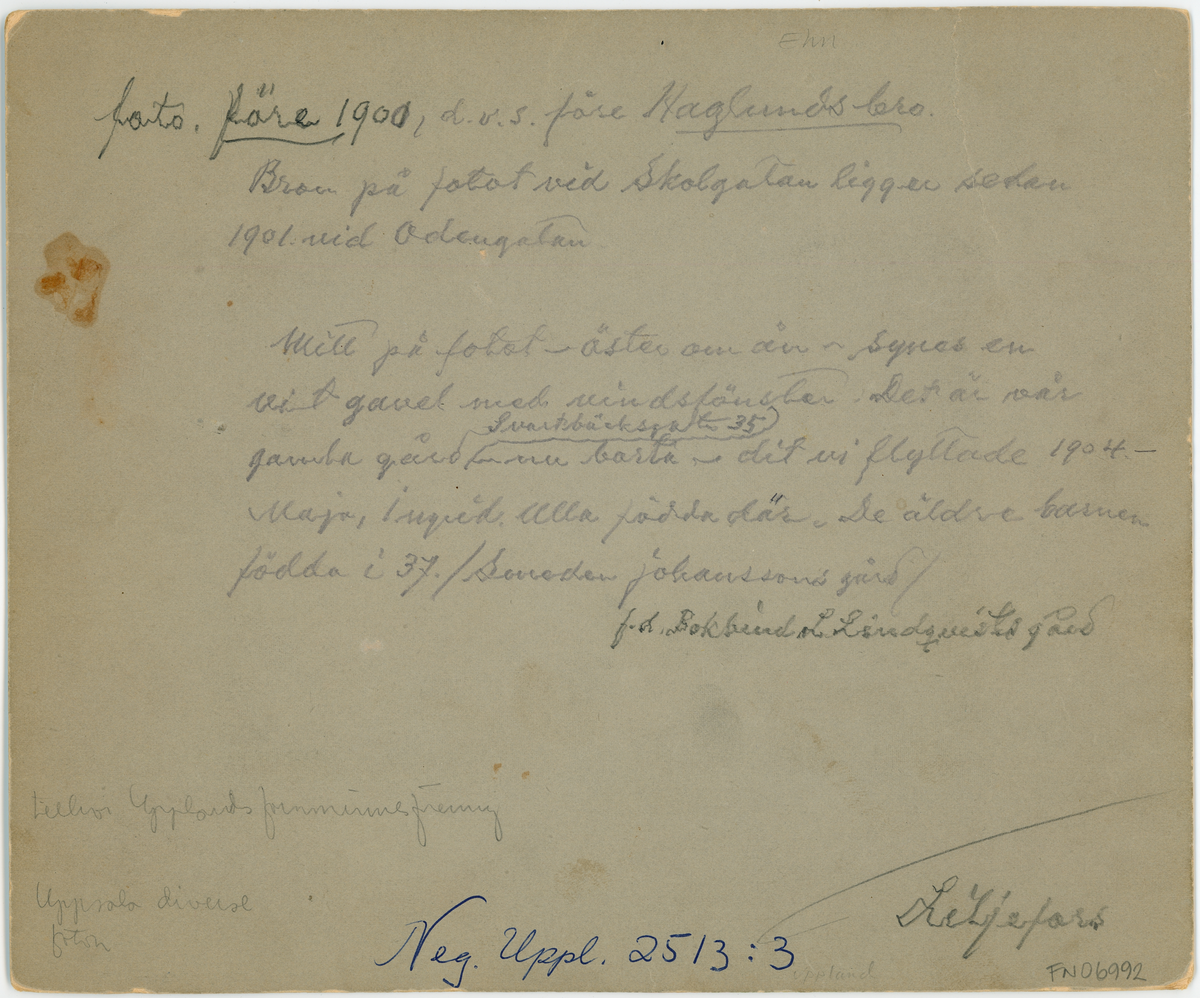 Ehn
foto. före 1901, d.v.s. före Haglunds bro.
Bron på fotot vid Skolgatan ligger sedan
1901 vid Odengatan.
Mitt på fotot – öster om ån – synes en
vit gavel med vindsfönster. Det är vår
Svartbäcksgatan 35
gamla gård – nu borta – dit vi flyttade 1904. –
Maja, Ingrid, Ulla födda där. De äldre barnen
födda i 37. / Smeden Johanssons gård /
f.d. Bokbind. L Lindqvists gård
tillhör Upplands fornminnesförening
Uppsala diverse
foton
Liljefors
Neg. Uppl. 2513:3
Uppland
FN06992